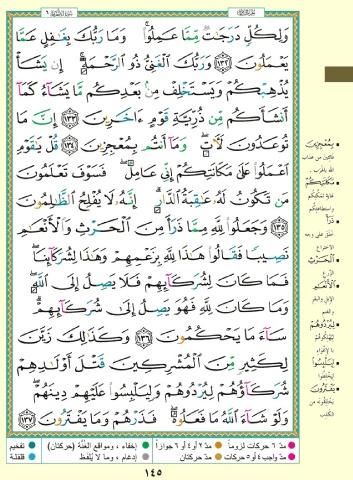 وَلِكُلٍّ دَرَجَٰتٌ مِّمَّا عَمِلُوا۟ ۚ وَمَا رَبُّكَ بِغَٰفِلٍ عَمَّا
يَعْمَلُونَ ١٣٢ وَرَبُّكَ ٱلْغَنِىُّ ذُو ٱلرَّحْمَةِ ۚ إِن يَشَأْ
يُذْهِبْكُمْ وَيَسْتَخْلِفْ مِنۢ بَعْدِكُم مَّا يَشَآءُ كَمَآ
أَنشَأَكُم مِّن ذُرِّيَّةِ قَوْمٍ ءَاخَرِينَ ١٣٣ إِنَّ مَا
تُوعَدُونَ لَءَاتٍ ۖ وَمَآ أَنتُم بِمُعْجِزِينَ ١٣٤ قُلْ يَٰقَوْمِ
ٱعْمَلُوا۟ عَلَىٰ مَكَانَتِكُمْ إِنِّى عَامِلٌ ۖ فَسَوْفَ تَعْلَمُونَ
مَن تَكُونُ لَهُۥ عَٰقِبَةُ ٱلدَّارِ ۗ إِنَّهُۥ لَا يُفْلِحُ ٱلظَّٰلِمُونَ
١٣٥ وَجَعَلُوا۟ لِلَّهِ مِمَّا ذَرَأَ مِنَ ٱلْحَرْثِ وَٱلْأَنْعَٰمِ
نَصِيبًا فَقَالُوا۟ هَٰذَا لِلَّهِ بِزَعْمِهِمْ وَهَٰذَا لِشُرَكَآئِنَا ۖ
فَمَا كَانَ لِشُرَكَآئِهِمْ فَلَا يَصِلُ إِلَى ٱللَّهِ ۖ
وَمَا كَانَ لِلَّهِ فَهُوَ يَصِلُ إِلَىٰ شُرَكَآئِهِمْ ۗ
سَآءَ مَا يَحْكُمُونَ ١٣٦ وَكَذَٰلِكَ زَيَّنَ
لِكَثِيرٍ مِّنَ ٱلْمُشْرِكِينَ قَتْلَ أَوْلَٰدِهِمْ
شُرَكَآؤُهُمْ لِيُرْدُوهُمْ وَلِيَلْبِسُوا۟ عَلَيْهِمْ دِينَهُمْ ۖ
وَلَوْ شَآءَ ٱللَّهُ مَا فَعَلُوهُ ۖ فَذَرْهُمْ وَمَا يَفْتَرُونَ ١٣٧
بِمُعْجِزِينَ
فائتين من عذاب
الله بالهرب
مَكَانَتِكُمْ
غاية تمكّنكم
واستطاعتكم
ذَرَأَ
خلق على وجه
الاختراع
الْحَرْثِ
الزرع
الْأَنْعَامِ
الإبل والبقر
والغنم
لِيُرْدُوهُمْ
ليهلكوهم
بالإغواء
لِيَلْبِسُوا
ليخلطوا
يَفْتَرُونَ
يختلقونه من
الكذب
مدّ ٦ حركات لزوماً
مدّ ٢ أو ٤ أو ٦ جوازاً
إخفاء، ومواقع الغُنَّة (حركتان)
تفخيم
مدّ واجب ٤ أو ٥ حركات
مدّ حركتان
إدغام، وما لا يُلفَظ
قلقلة
١٤٥